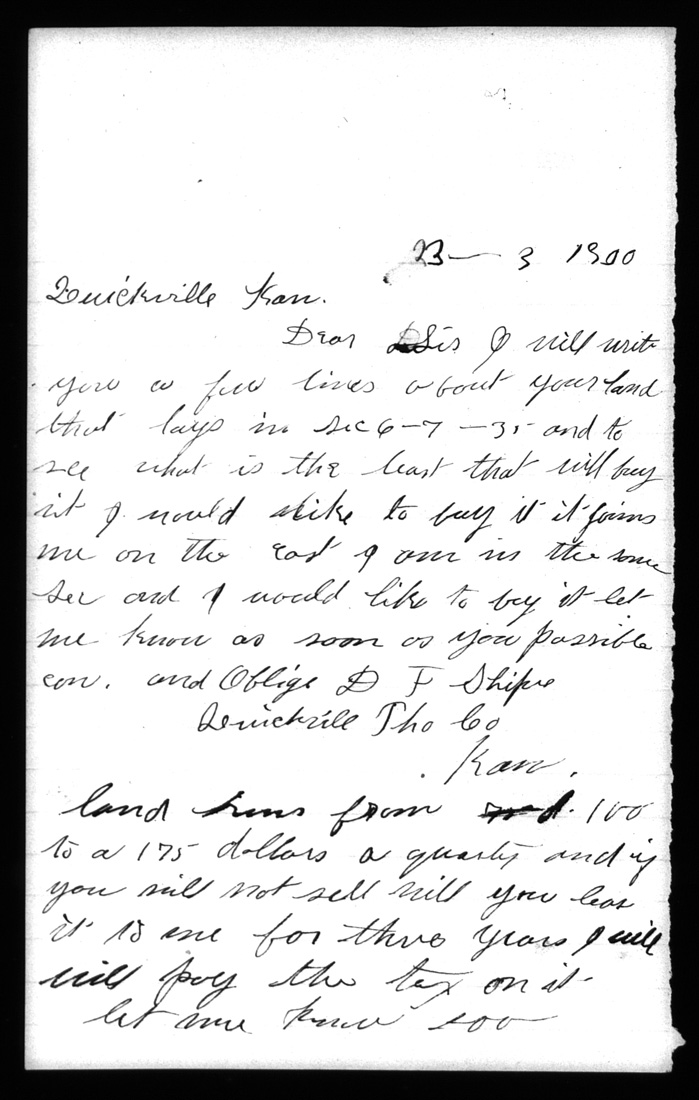 23 — 3 1900
Quickville Kan.
Dear Sir I will write
you a few lines about your land
that lays in sec 6 - 7 - 35 and to
see what is the least that will buy
it I would like to buy it it joins
me on the East I am in the same
Sec and I would like to buy it let
me know as soon as you possible
can. and Oblige D F Shipe
Quickville Tho Co
Kan.
land runs from 100
to a 175 dollars a quarter and if
you will not sell will you leas
it to me for three years I will
will pay the tax on it
let me know soo